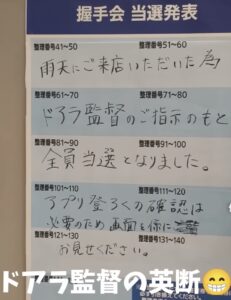 握手会 当選発表
整理番号41~50 整理番号51~60
雨天にご来店いただいた為
整理番号61~70 整理番号71~80
ドアラ監督のご指示のもと
整理番号81~90 整理番号91~100
全員当選となりました。
整理番号101~110 整理番号111~120
アプリ登ろくの確認は
必要のため 画面を係に
整理番号121~130 整理番号131~140
お見せください。
ドアラ監督の英断😁